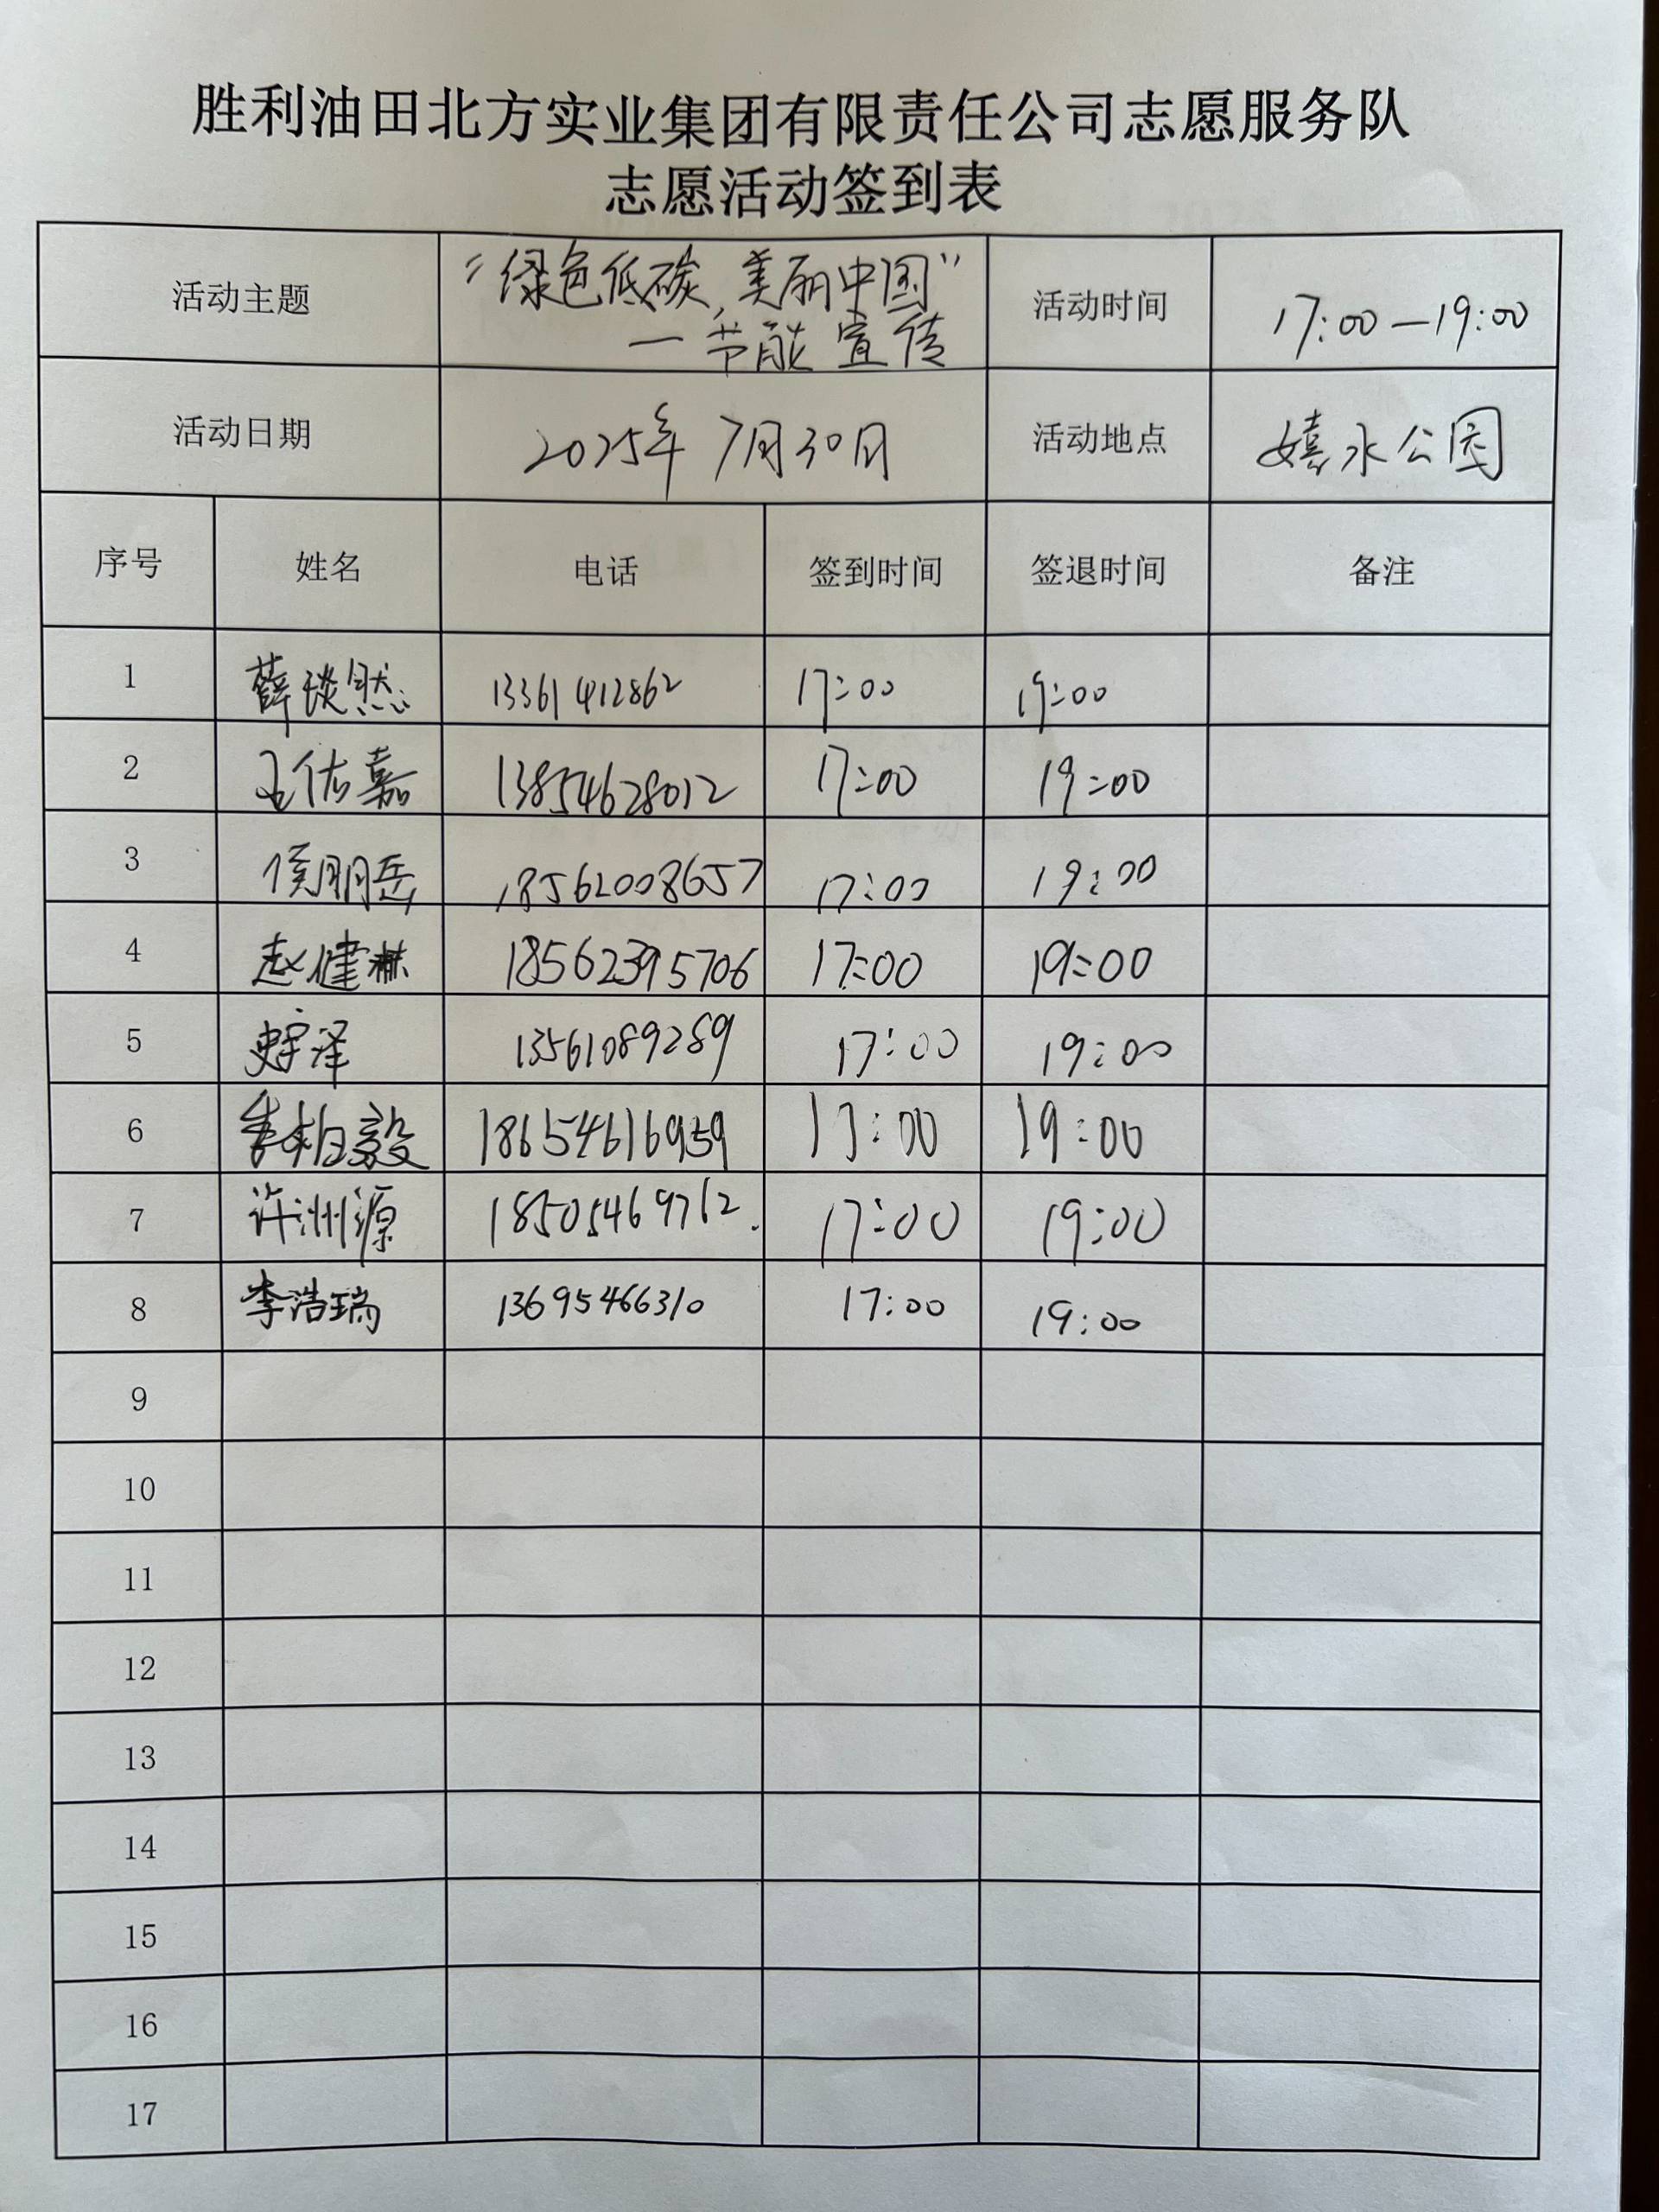 胜利油田北方实业集团有限责任公司志愿服务队
志愿活动签到表
活动主题 “绿色低碳,美丽中国” 活动时间 17:00—19:00
—节能宣传
活动日期 2025年7月30日 活动地点 嬉水公园
序号 姓名 电话 签到时间 签退时间 备注
1 薛谈然 13361412862 17:00 19:00
2 王佑嘉 13854628012 17:00 19:00
3 侯朋岳 18562008657 17:00 19:00
4 赵健淋 18562395706 17:00 19:00
5 史宇泽 13561089289 17:00 19:00
6 柏毅 18654616959 17:00 19:00
7 许洲源 18505469762. 17:00 19:00
8 李浩瑞 13695466310 17:00 19:00
9
10
11
12
13
14
15
16
17